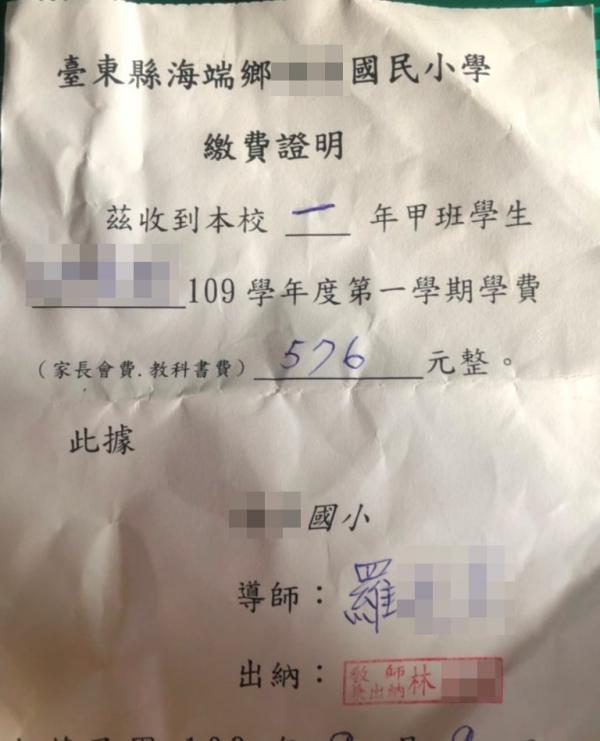 臺東縣海端鄉 國民小學
繳費證明
茲收到本校 一 年甲班學生
109學年度第一學期學費
（家長會費.教科書費） 576 元整。
此據
國小
導師：羅
出納：教師兼出納 林